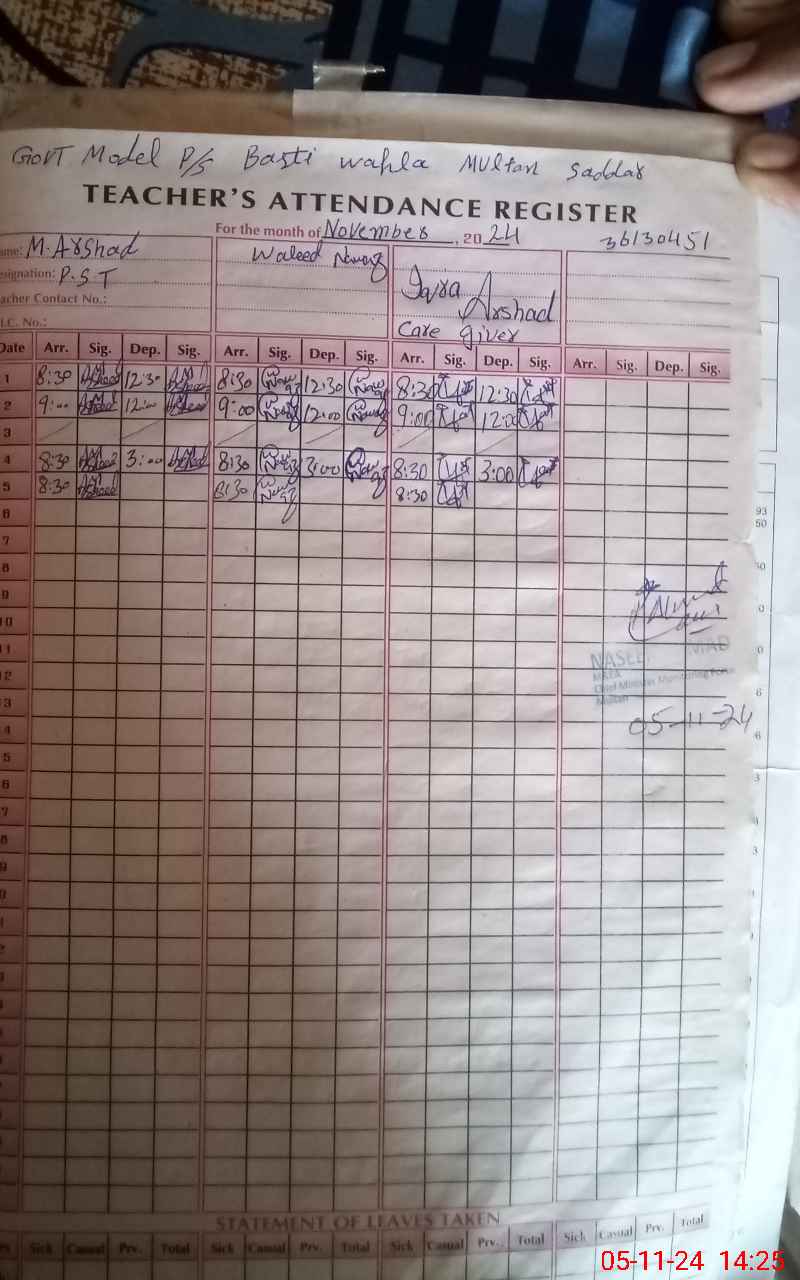 GOVT Model P/S Basti wahla Multan Saddar
TEACHER'S ATTENDANCE REGISTER
For the month of November, 2024
36130451
ame: M. Arshad
Waleed Nawaz
Iqra Arshad
esignation: P.S.T
acher Contact No.:
I.C. No.:
Care giver
Date Arr. Sig. Dep. Sig. Arr. Sig. Dep. Sig. Arr. Sig. Dep. Sig. Arr. Sig. Dep. Sig.
1 8:30 12:30 8:30 12:30 8:30 12:30
2 9:00 12:00 9:00 12:00 9:00 12:00
3
4 8:30 3:00 8:30 3:00 8:30 3:00
5 8:30 8:30 8:30
6
7
8
9
10
11
12
3
4
5
6
7
8
9
Chief Minister Monitoring Force
Multan
05-11-24
STATEMENT OF LEAVES TAKEN
Sick Casual Prv. Total Sick Casual Prv. Total Sick Casual Prv. Total Sick Casual Prv. Total
05-11-24 14:25